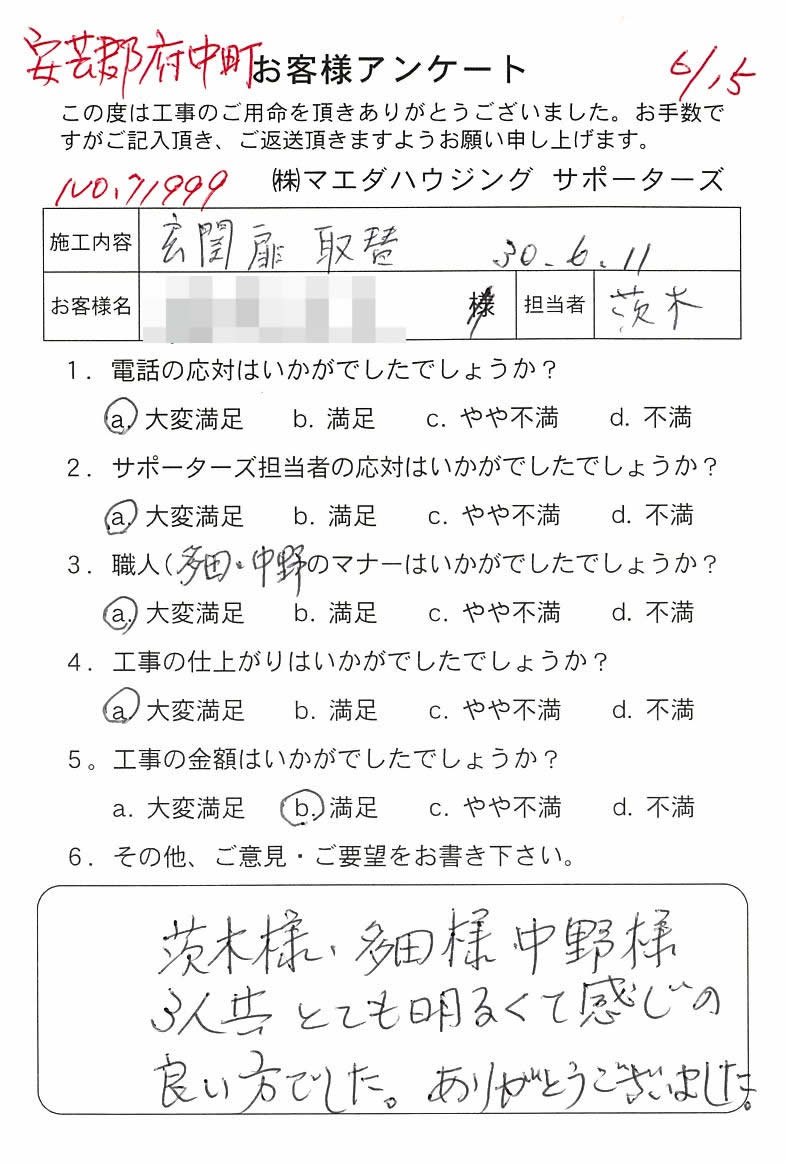 安芸郡府中町 お客様アンケート 6/15
この度は工事のご用命を頂きありがとうございました。お手数で
すがご記入頂き、ご返送頂きますようお願い申し上げます。
NO.71999 ㈱マエダハウジング サポーターズ
施工内容 玄関扉 取替 30.6.11
お客様名 様 担当者 茨木
1. 電話の応対はいかがでしたでしょうか?
a. 大変満足 b. 満足 c. やや不満 d. 不満
2. サポーターズ担当者の応対はいかがでしたでしょうか?
a. 大変満足 b. 満足 c. やや不満 d. 不満
3. 職人(多田・中野のマナーはいかがでしたでしょうか?
a. 大変満足 b. 満足 c. やや不満 d. 不満
4. 工事の仕上がりはいかがでしたでしょうか?
a. 大変満足 b. 満足 c. やや不満 d. 不満
5。工事の金額はいかがでしたでしょうか?
a. 大変満足 b. 満足 c. やや不満 d. 不満
6. その他、ご意見・ご要望をお書き下さい。
茨木様、多田様 中野様
3人共 とても明るくて感じの
良い方でした。ありがとうございました。